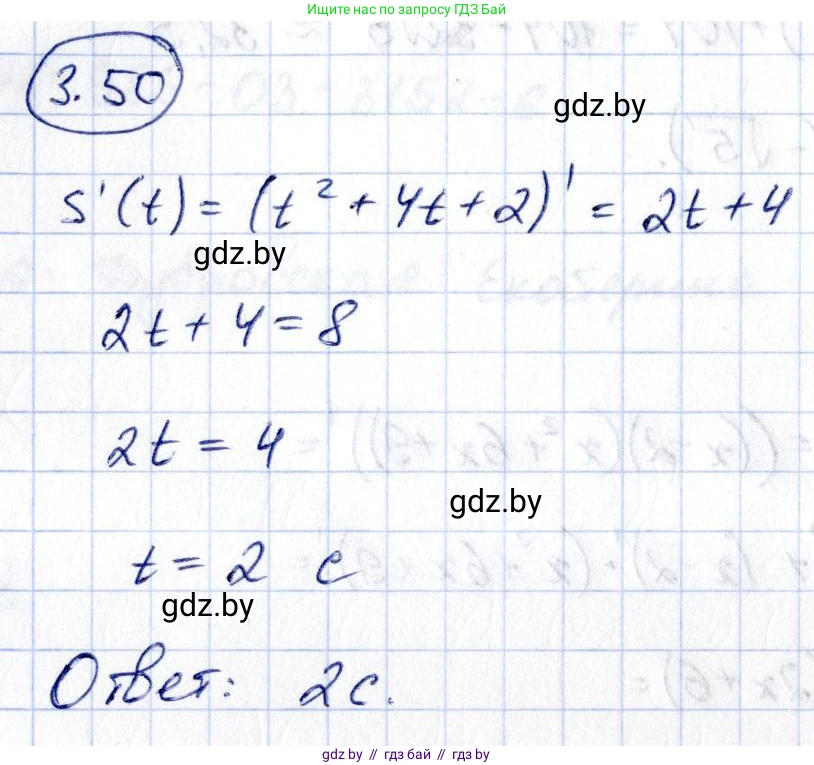 Ищите нас по запросу ГДЗ Бай
3.50
gdz.by
s'(t) = (t² + 4t + 2)' = 2t + 4
gdz.by
2t + 4 = 8
2t = 4
gdz.by
t = 2 с
gdz.by
Ответ: 2с.
gdz.by // гдз бай // гдз by